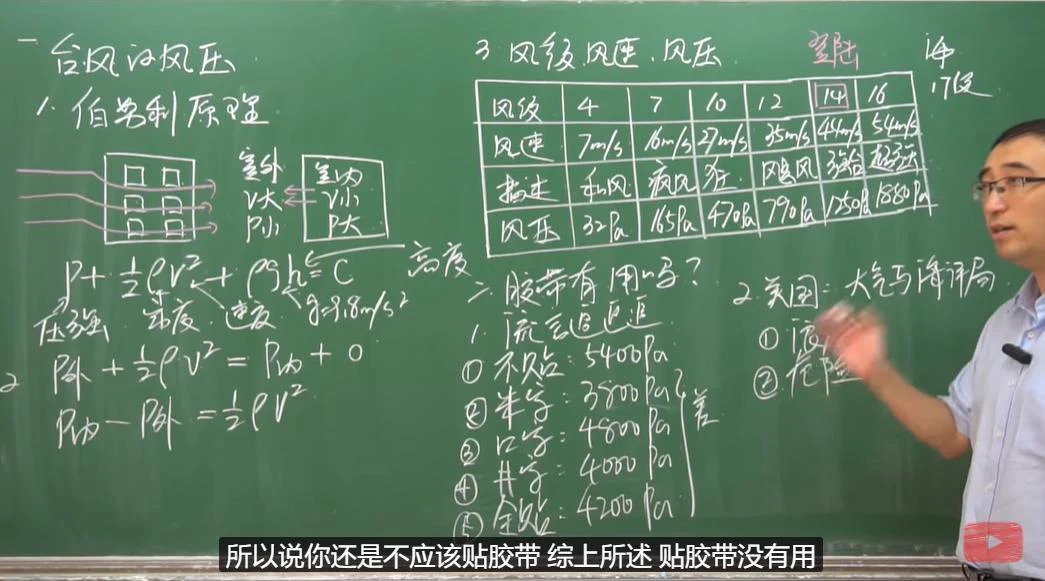 一 台风的风压
1. 伯努利原理
室外
V大
P小
室内
V小
P大
P + ½ρV² + ρgh = C
高度
压强 密度 速度 g=9.8m/s²
2 P外 + ½ρV² = P内 + 0
P内 - P外 = ½ρV²
3. 风级、风速、风压
登陆
海
17级
风级 4 7 10 12 14 16
风速 7m/s 16m/s 27m/s 35m/s 44m/s 54m/s
描述 和风 疾风 狂 飓风 强台 超强
风压 32Pa 165Pa 470Pa 790Pa 1250Pa 1880Pa
二、胶带有用吗?
1. 流言追追追
① 不贴: 5400Pa
② 米字: 3800Pa?
③ 口字: 4800Pa
④ 井字: 4000Pa
⑤ 全贴: 4200Pa
差
2. 美国: 大气与海洋局
① 浪
② 危险
所以说你还是不应该贴胶带 综上所述 贴胶带没有用